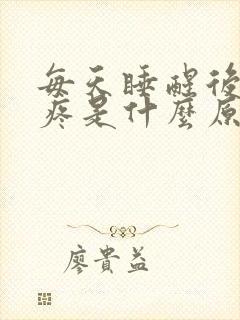 每天睡醒後
疼是什麼原
廖貴益